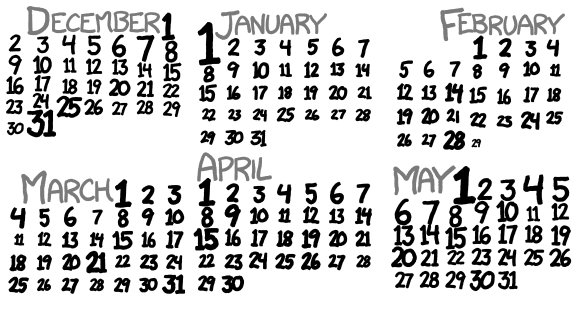 DECEMBER 1
2 3 4 5 6 7 8
9 10 11 12 13 14 15
16 17 18 19 20 21 22
23 24 25 26 27 28 29
30 31
JANUARY
1 2 3 4 5 6 7
8 9 10 11 12 13 14
15 16 17 18 19 20 21
22 23 24 25 26 27 28
29 30 31
FEBRUARY
1 2 3 4
5 6 7 8 9 10 11
12 13 14 15 16 17 18
19 20 21 22 23 24 25
26 27 28 29
MARCH 1 2 3
4 5 6 7 8 9 10
11 12 13 14 15 16 17
18 19 20 21 22 23 24
25 26 27 28 29 30 31
APRIL
1 2 3 4 5 6 7
8 9 10 11 12 13 14
15 16 17 18 19 20 21
22 23 24 25 26 27 28
29 30
MAY 1 2 3 4 5
6 7 8 9 10 11 12
13 14 15 16 17 18 19
20 21 22 23 24 25 26
27 28 29 30 31